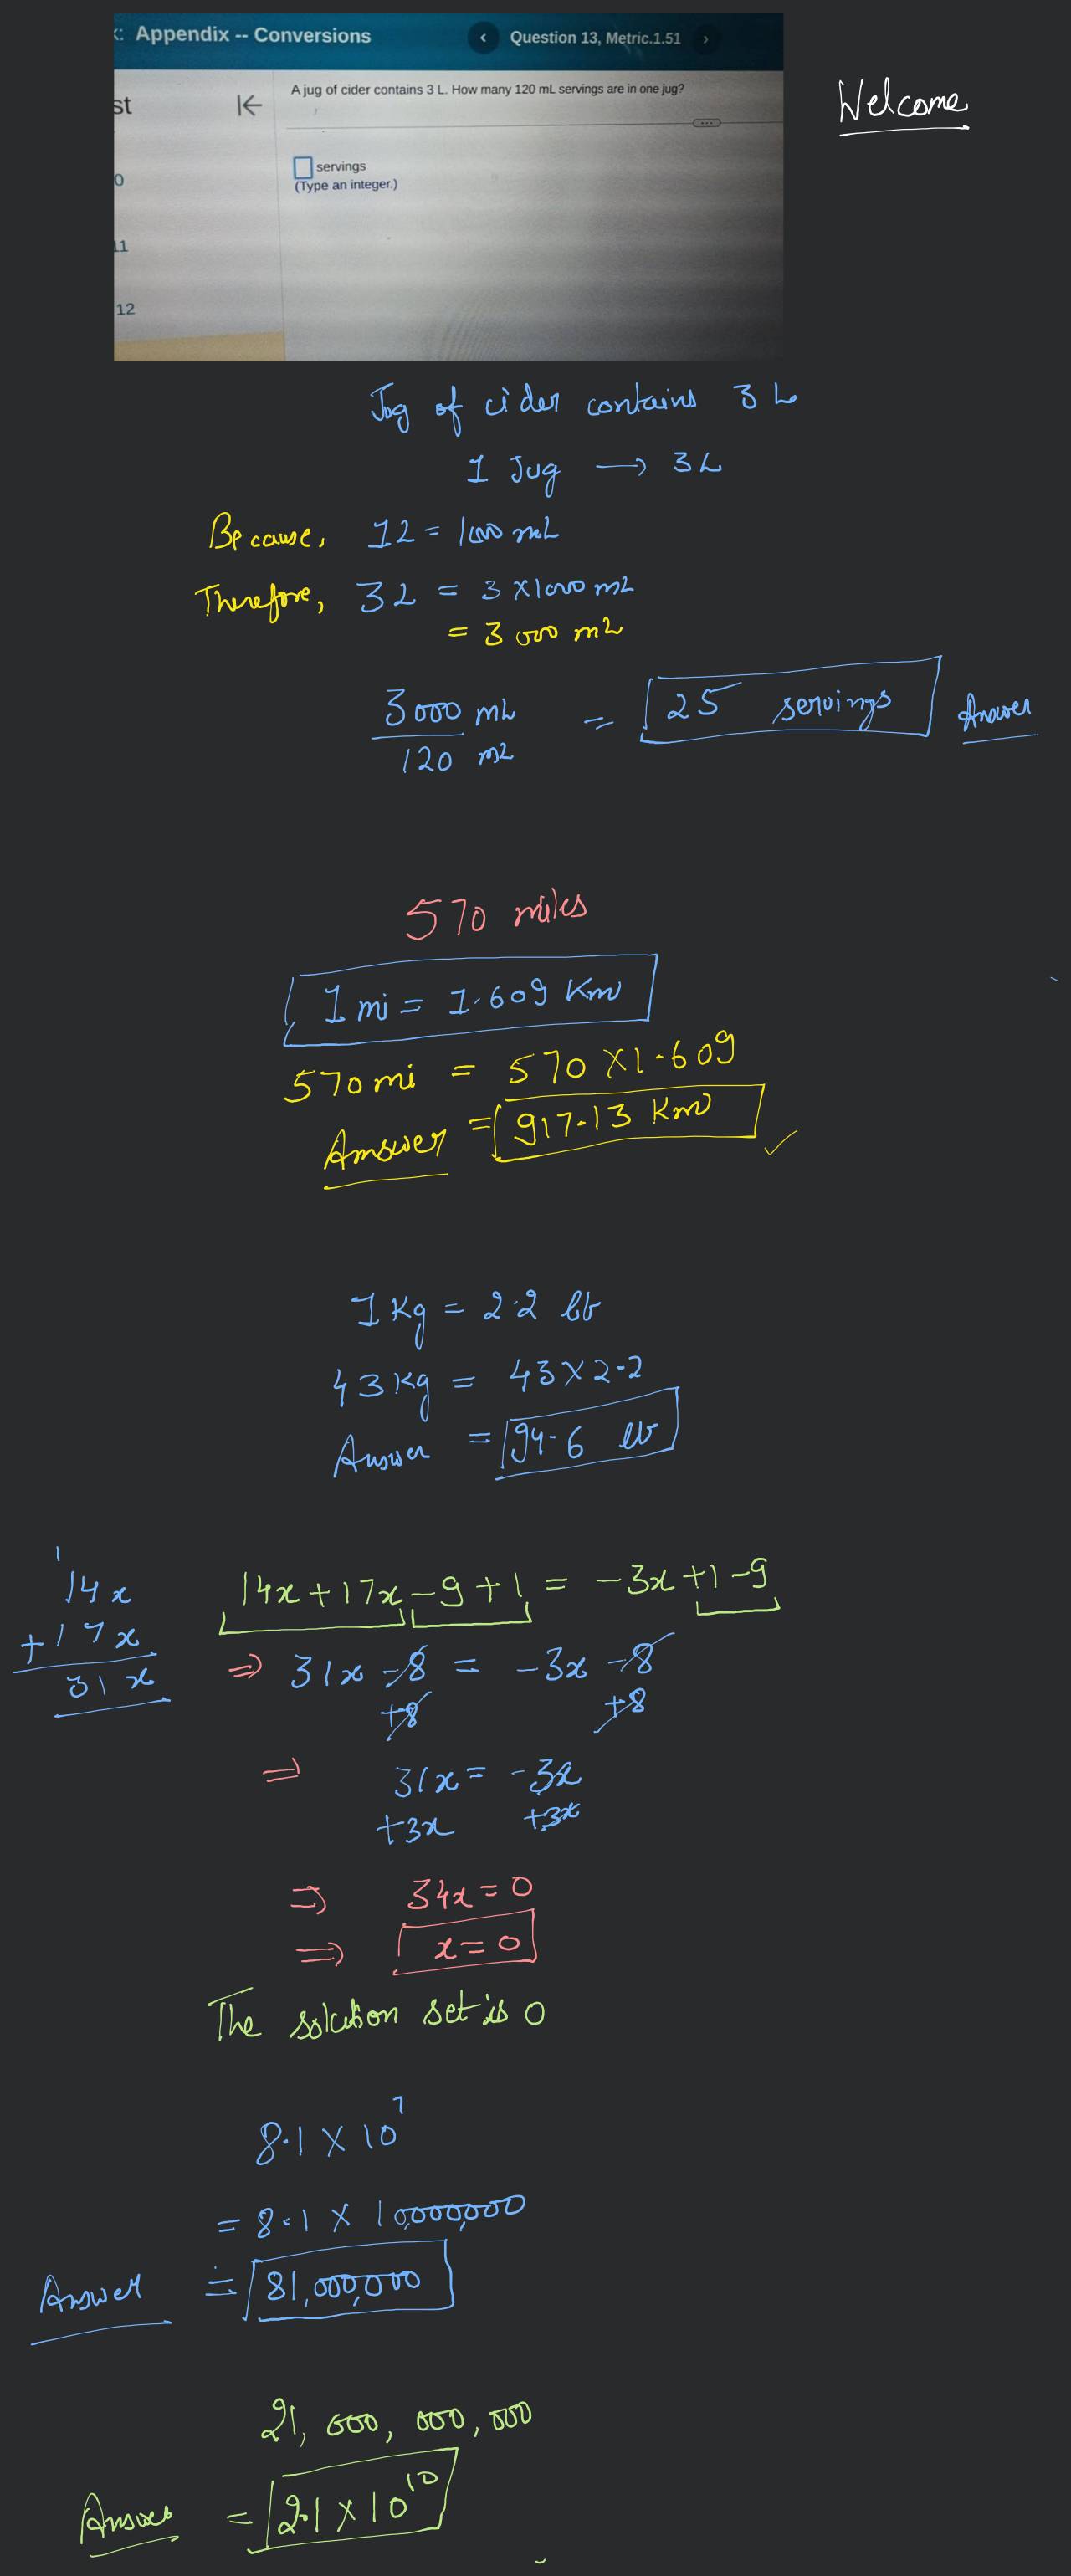 k: Appendix -- Conversions
Question 13, Metric.1.51
st
A jug of cider contains 3 L. How many 120 mL servings are in one jug?
Welcome
servings
(Type an integer.)
0
11
12
Jug of cider contains 3 L
1 Jug → 3L
Because, 1L = 1000 mL
Therefore, 3L = 3 × 1000 mL
= 3000 mL
3000 mL / 120 mL = 25 servings Answer
570 miles
1 mi = 1.609 Km
570 mi = 570 × 1.609
Answer = 917.13 Km ✓
1 Kg = 2.2 lb
43 Kg = 43 × 2.2
Answer = 94.6 lb
14x
+17x
31x
14x + 17x - 9 + 1 = -3x + 1 - 9
⇒ 31x - 8 = -3x - 8
+8 +8
⇒ 31x = -3x
+3x +3x
⇒ 34x = 0
⇒ x = 0
The solution set is 0
8.1 × 10⁷
= 8.1 × 10,000,000
Answer = 81,000,000
21,000,000,000
Answer = 2.1 × 10¹⁰